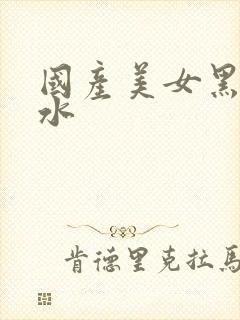 國產美女黑
水
肯德里克拉馬